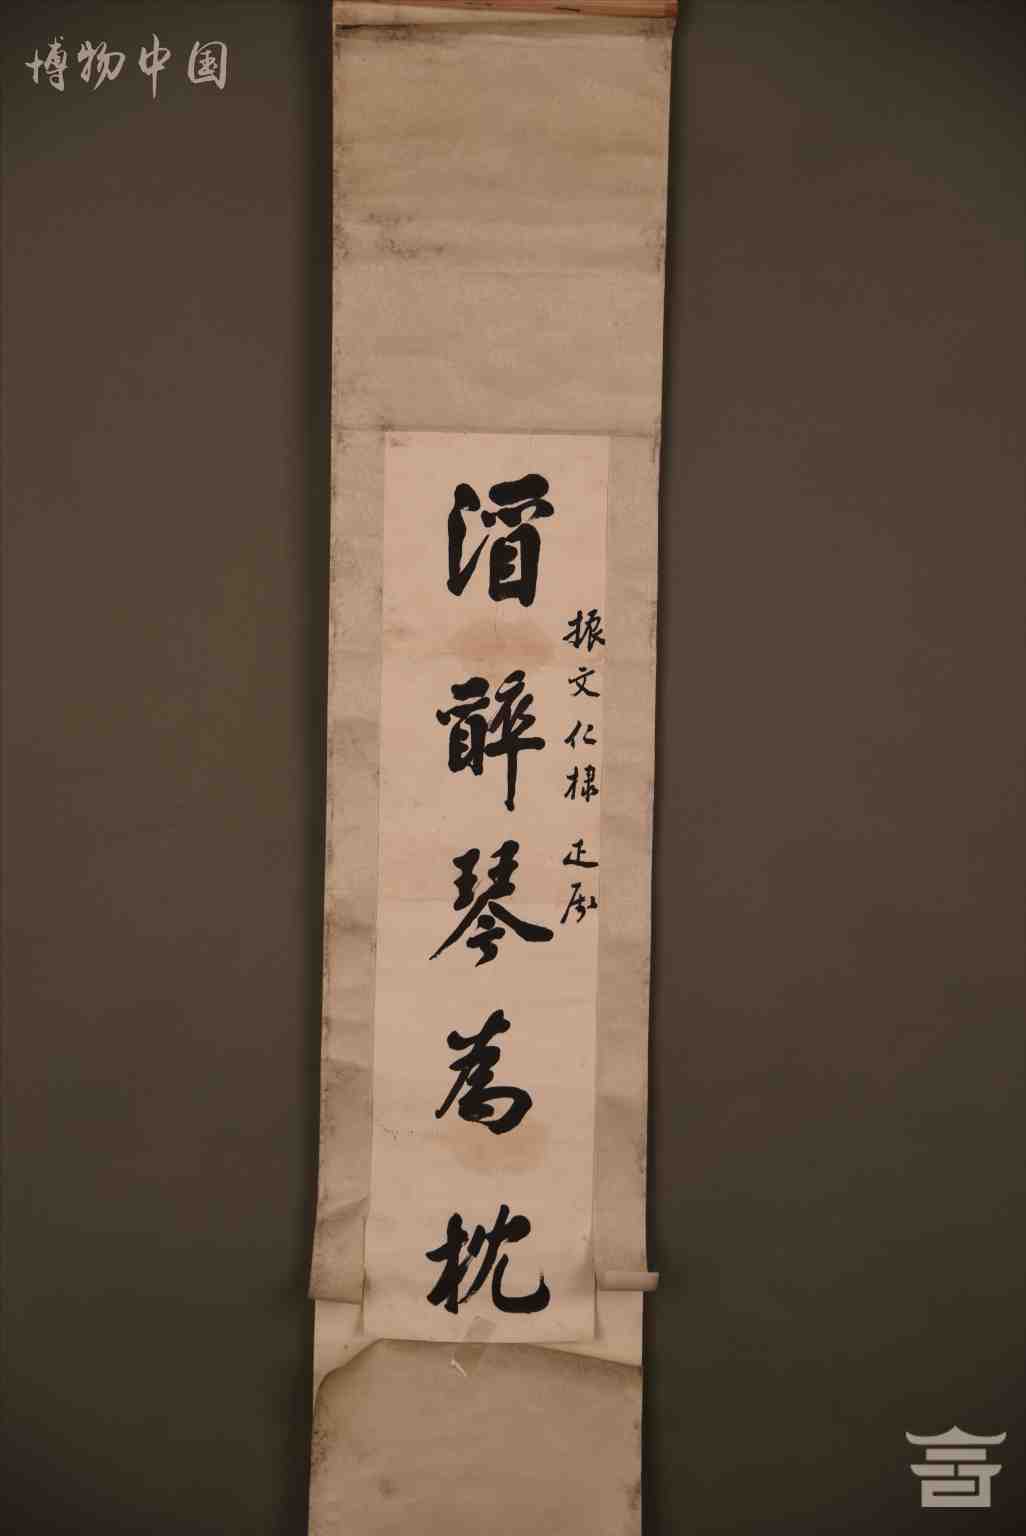 博物中国
振文仁棣 正
酒醉琴為枕